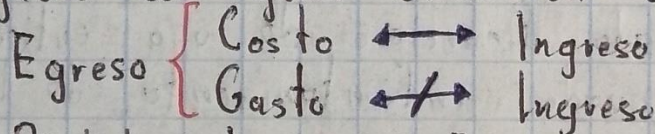 Egreso { Costo ↔ Ingreso
Gasto ↮ Ingreso